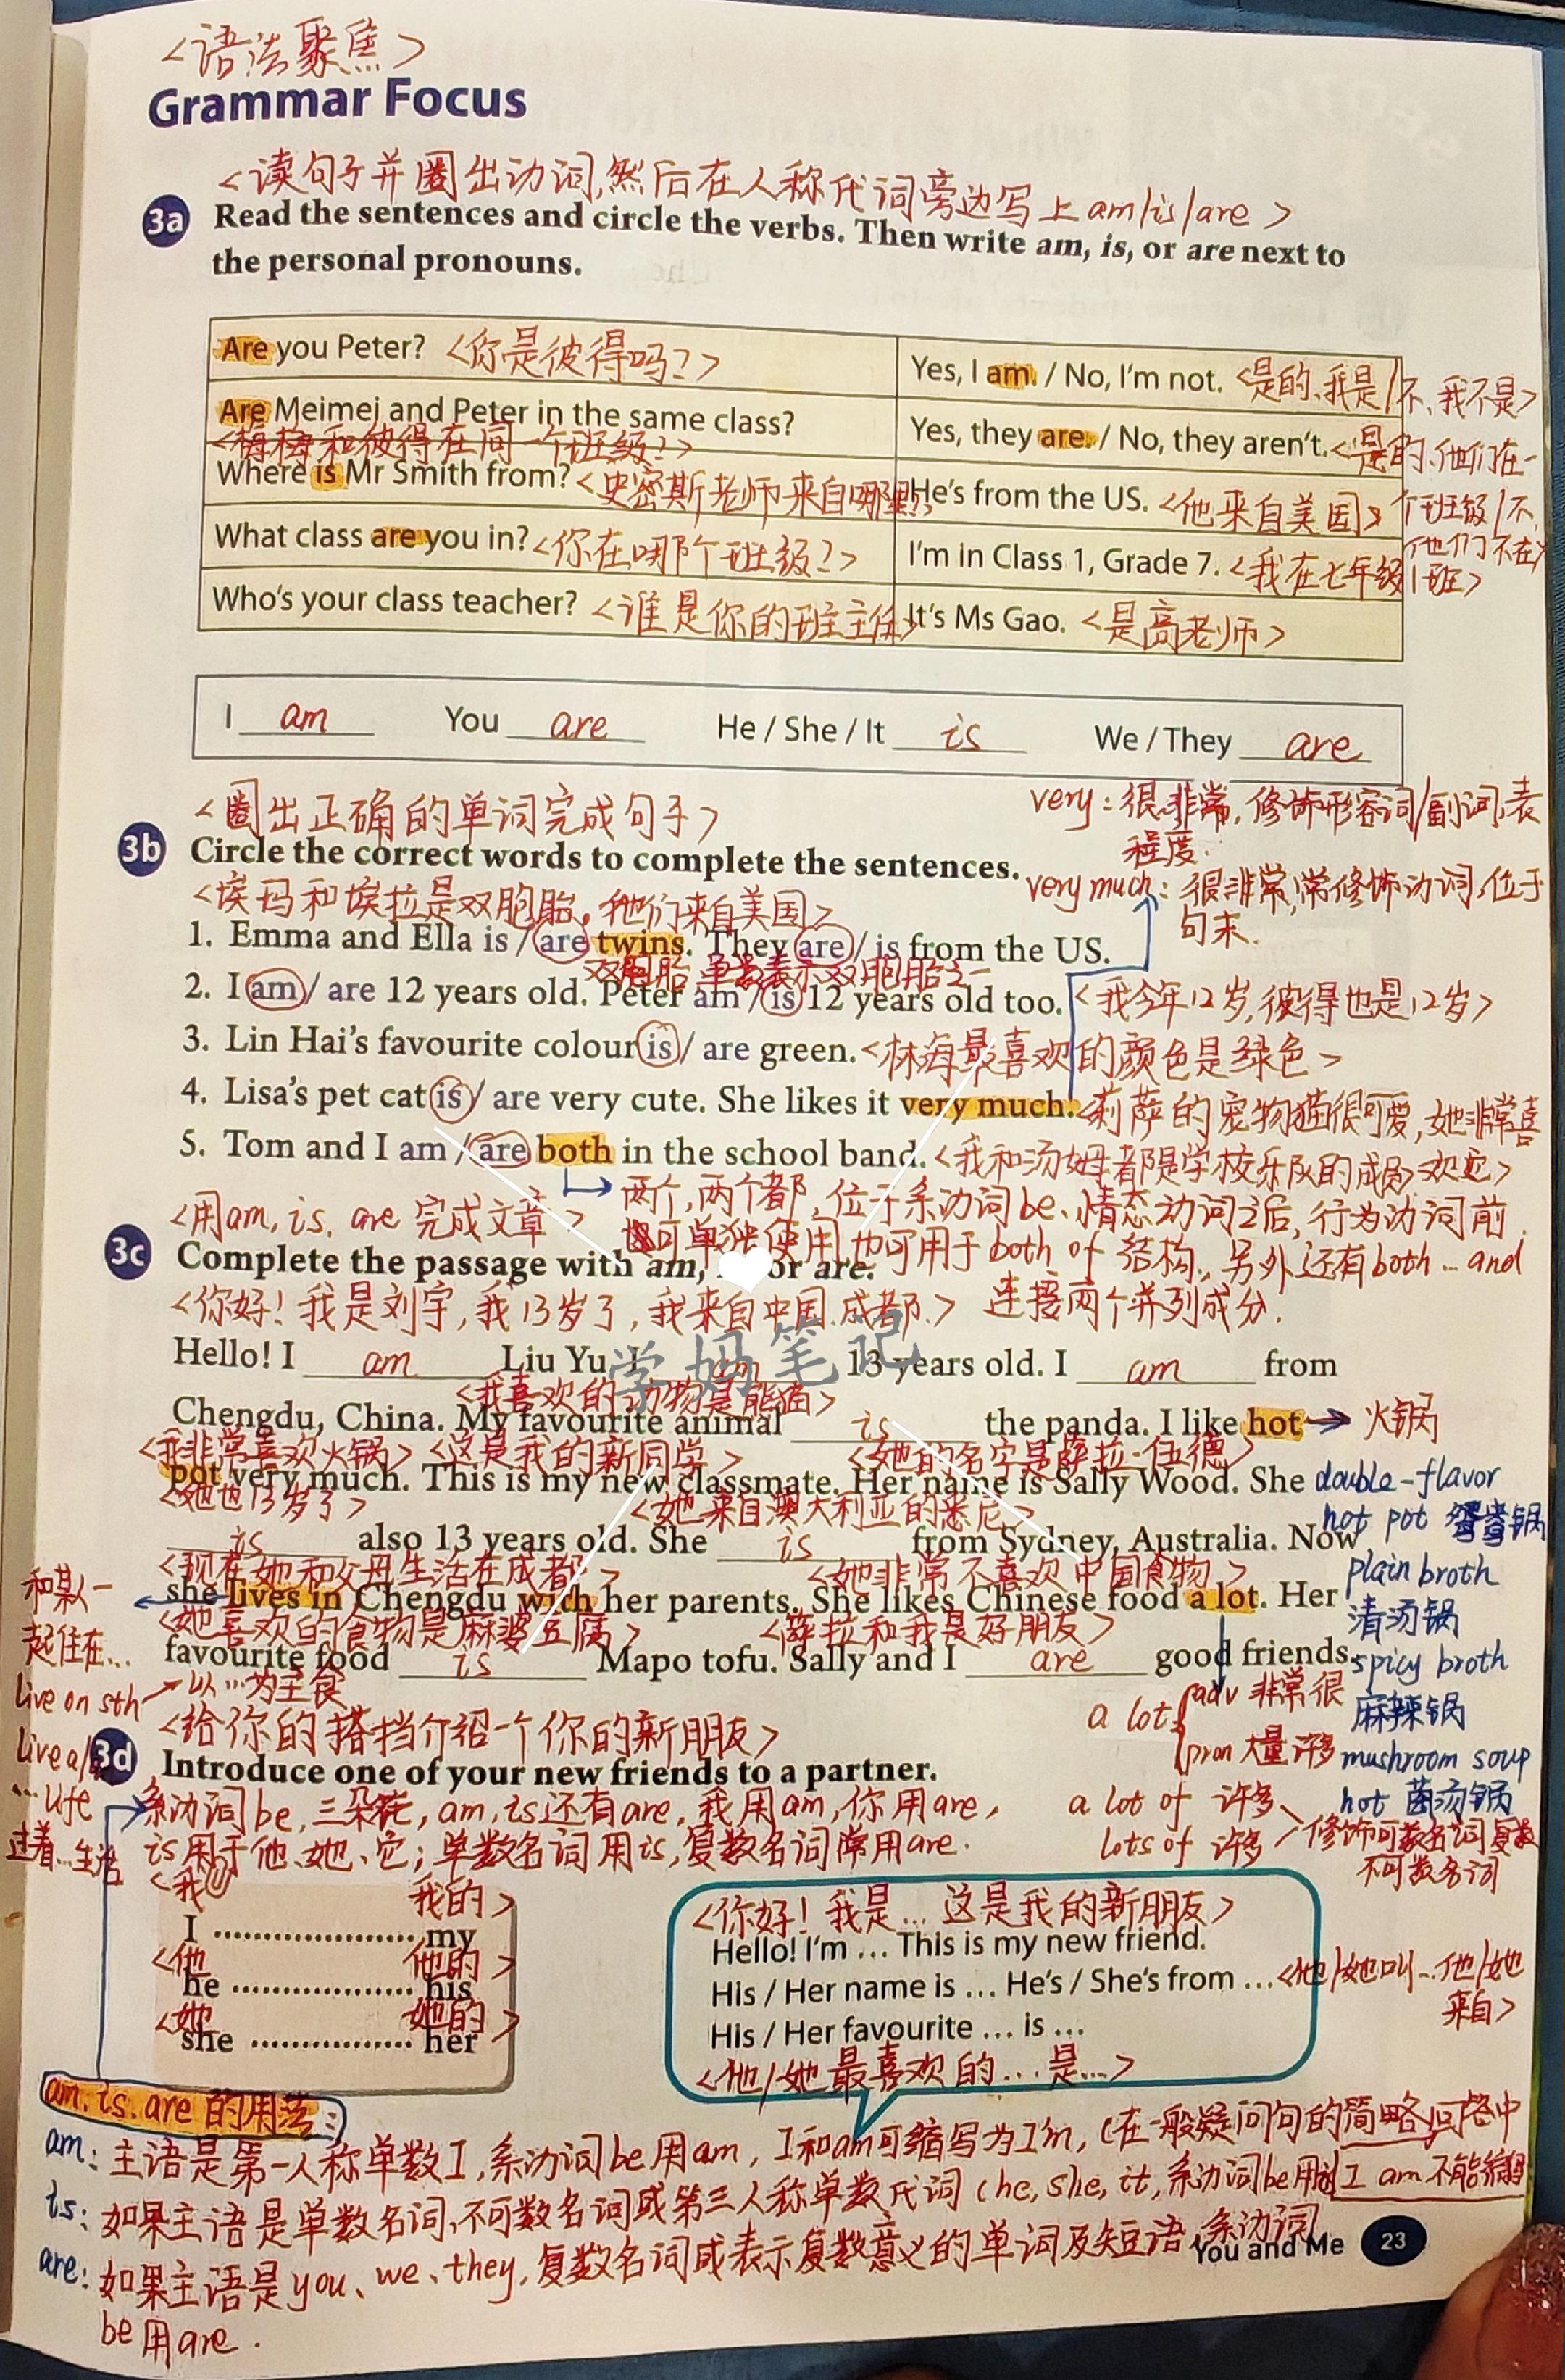 <语法聚焦>
Grammar Focus
<读句子并圈出动词,然后在人称代词旁边写上am/is/are>
3a Read the sentences and circle the verbs. Then write am, is, or are next to
the personal pronouns.
Are you Peter? <你是彼得吗?>
Yes, I am. / No, I'm not. <是的、我是/不、我不是>
Are Meimei and Peter in the same class?
<梅梅和彼得在同一个班级?>
Yes, they are. / No, they aren't. <是的、他们在一
个班级/不,
他们不在>
Where is Mr Smith from? <史密斯老师来自哪里?>
He's from the US. <他来自美国>
What class are you in? <你在哪个班级?>
I'm in Class 1, Grade 7. <我在七年级1班>
Who's your class teacher? <谁是你的班主任>
It's Ms Gao. <是高老师>
I am You are He / She / It is We / They are
very: 很,非常,修饰形容词/副词,表
程度.
<圈出正确的单词完成句子>
3b Circle the correct words to complete the sentences.
very much: 很非常,常修饰动词,位于
句末.
<埃玛和埃拉是双胞胎。他们来自美国>
1. Emma and Ella is / are twins. They are / is from the US.
双胞胎 单数表示双胞胎之一
2. I am / are 12 years old. Peter am / is 12 years old too. <我今年12岁,彼得也是12岁>
3. Lin Hai's favourite colour is / are green. <林海最喜欢的颜色是绿色>
4. Lisa's pet cat is / are very cute. She likes it very much. <莉萨的宠物猫很可爱,她非常喜
欢它>
5. Tom and I am / are both in the school band. <我和汤姆都是学校乐队的成员>
两个,两个都,位于系动词be、情态动词之后,行为动词前.
也可单独使用,也可用于both of 结构,另外还有both … and
连接两个并列成分.
<用am, is, are 完成文章>
3c Complete the passage with am, or are.
<你好!我是刘宇,我13岁了,我来自中国.成都.>
Hello! I am Liu Yu. I am 13 years old. I am from
<我喜欢的动物是熊猫>
Chengdu, China. My favourite animal is the panda. I like hot → 火锅
<我非常喜欢火锅> <这是我的新同学> <她的名字是萨拉·伍德>
pot very much. This is my new classmate. Her name is Sally Wood. She
<她也13岁了> <她来自澳大利亚的悉尼>
is also 13 years old. She is from Sydney, Australia. Now
<现在她和父母生活在成都> <她非常不喜欢中国食物>
she lives in Chengdu with her parents. She likes Chinese food a lot. Her
<她喜欢的食物是麻婆豆腐> <萨拉和我是好朋友>
favourite food is Mapo tofu. Sally and I are good friends.
double-flavor
hot pot 鸳鸯锅
plain broth
清汤锅
spicy broth
麻辣锅
mushroom soup
hot 菌汤锅
和某人一
起住在...
live on sth → 以…为主食
live a/
…life
过着…生活
a lot { adv 非常很
pron 大量许多
a lot of 许多
lots of 许多
修饰可数名词复数
不可数名词
<给你的搭挡介绍一个你的新朋友>
3d Introduce one of your new friends to a partner.
系动词be,三朵花,am,is还有are,我用am,你用are,
is用于他、她、它;单数名词用is,复数名词常用are.
<我 我的>
I ... my
<他 他的>
he ... his
<她 她的>
she ... her
<你好!我是... 这是我的新朋友>
Hello! I'm ... This is my new friend.
His / Her name is ... He's / She's from ... <他/她叫...他/她
来自>
His / Her favourite ... is ...
<他/她最喜欢的...是...>
am. is. are 的用法:
am: 主语是第一人称单数I,系动词be用am, I和am可缩写为I'm, (在一般疑问句的简略回答中
I am 不能缩写
is: 如果主语是单数名词、不可数名词或第三人称单数代词(he, she, it, 系动词be用is
are: 如果主语是you、we、they,复数名词或表示复数意义的单词及短语,系动词
be用are.
You and Me 23
学妈笔记